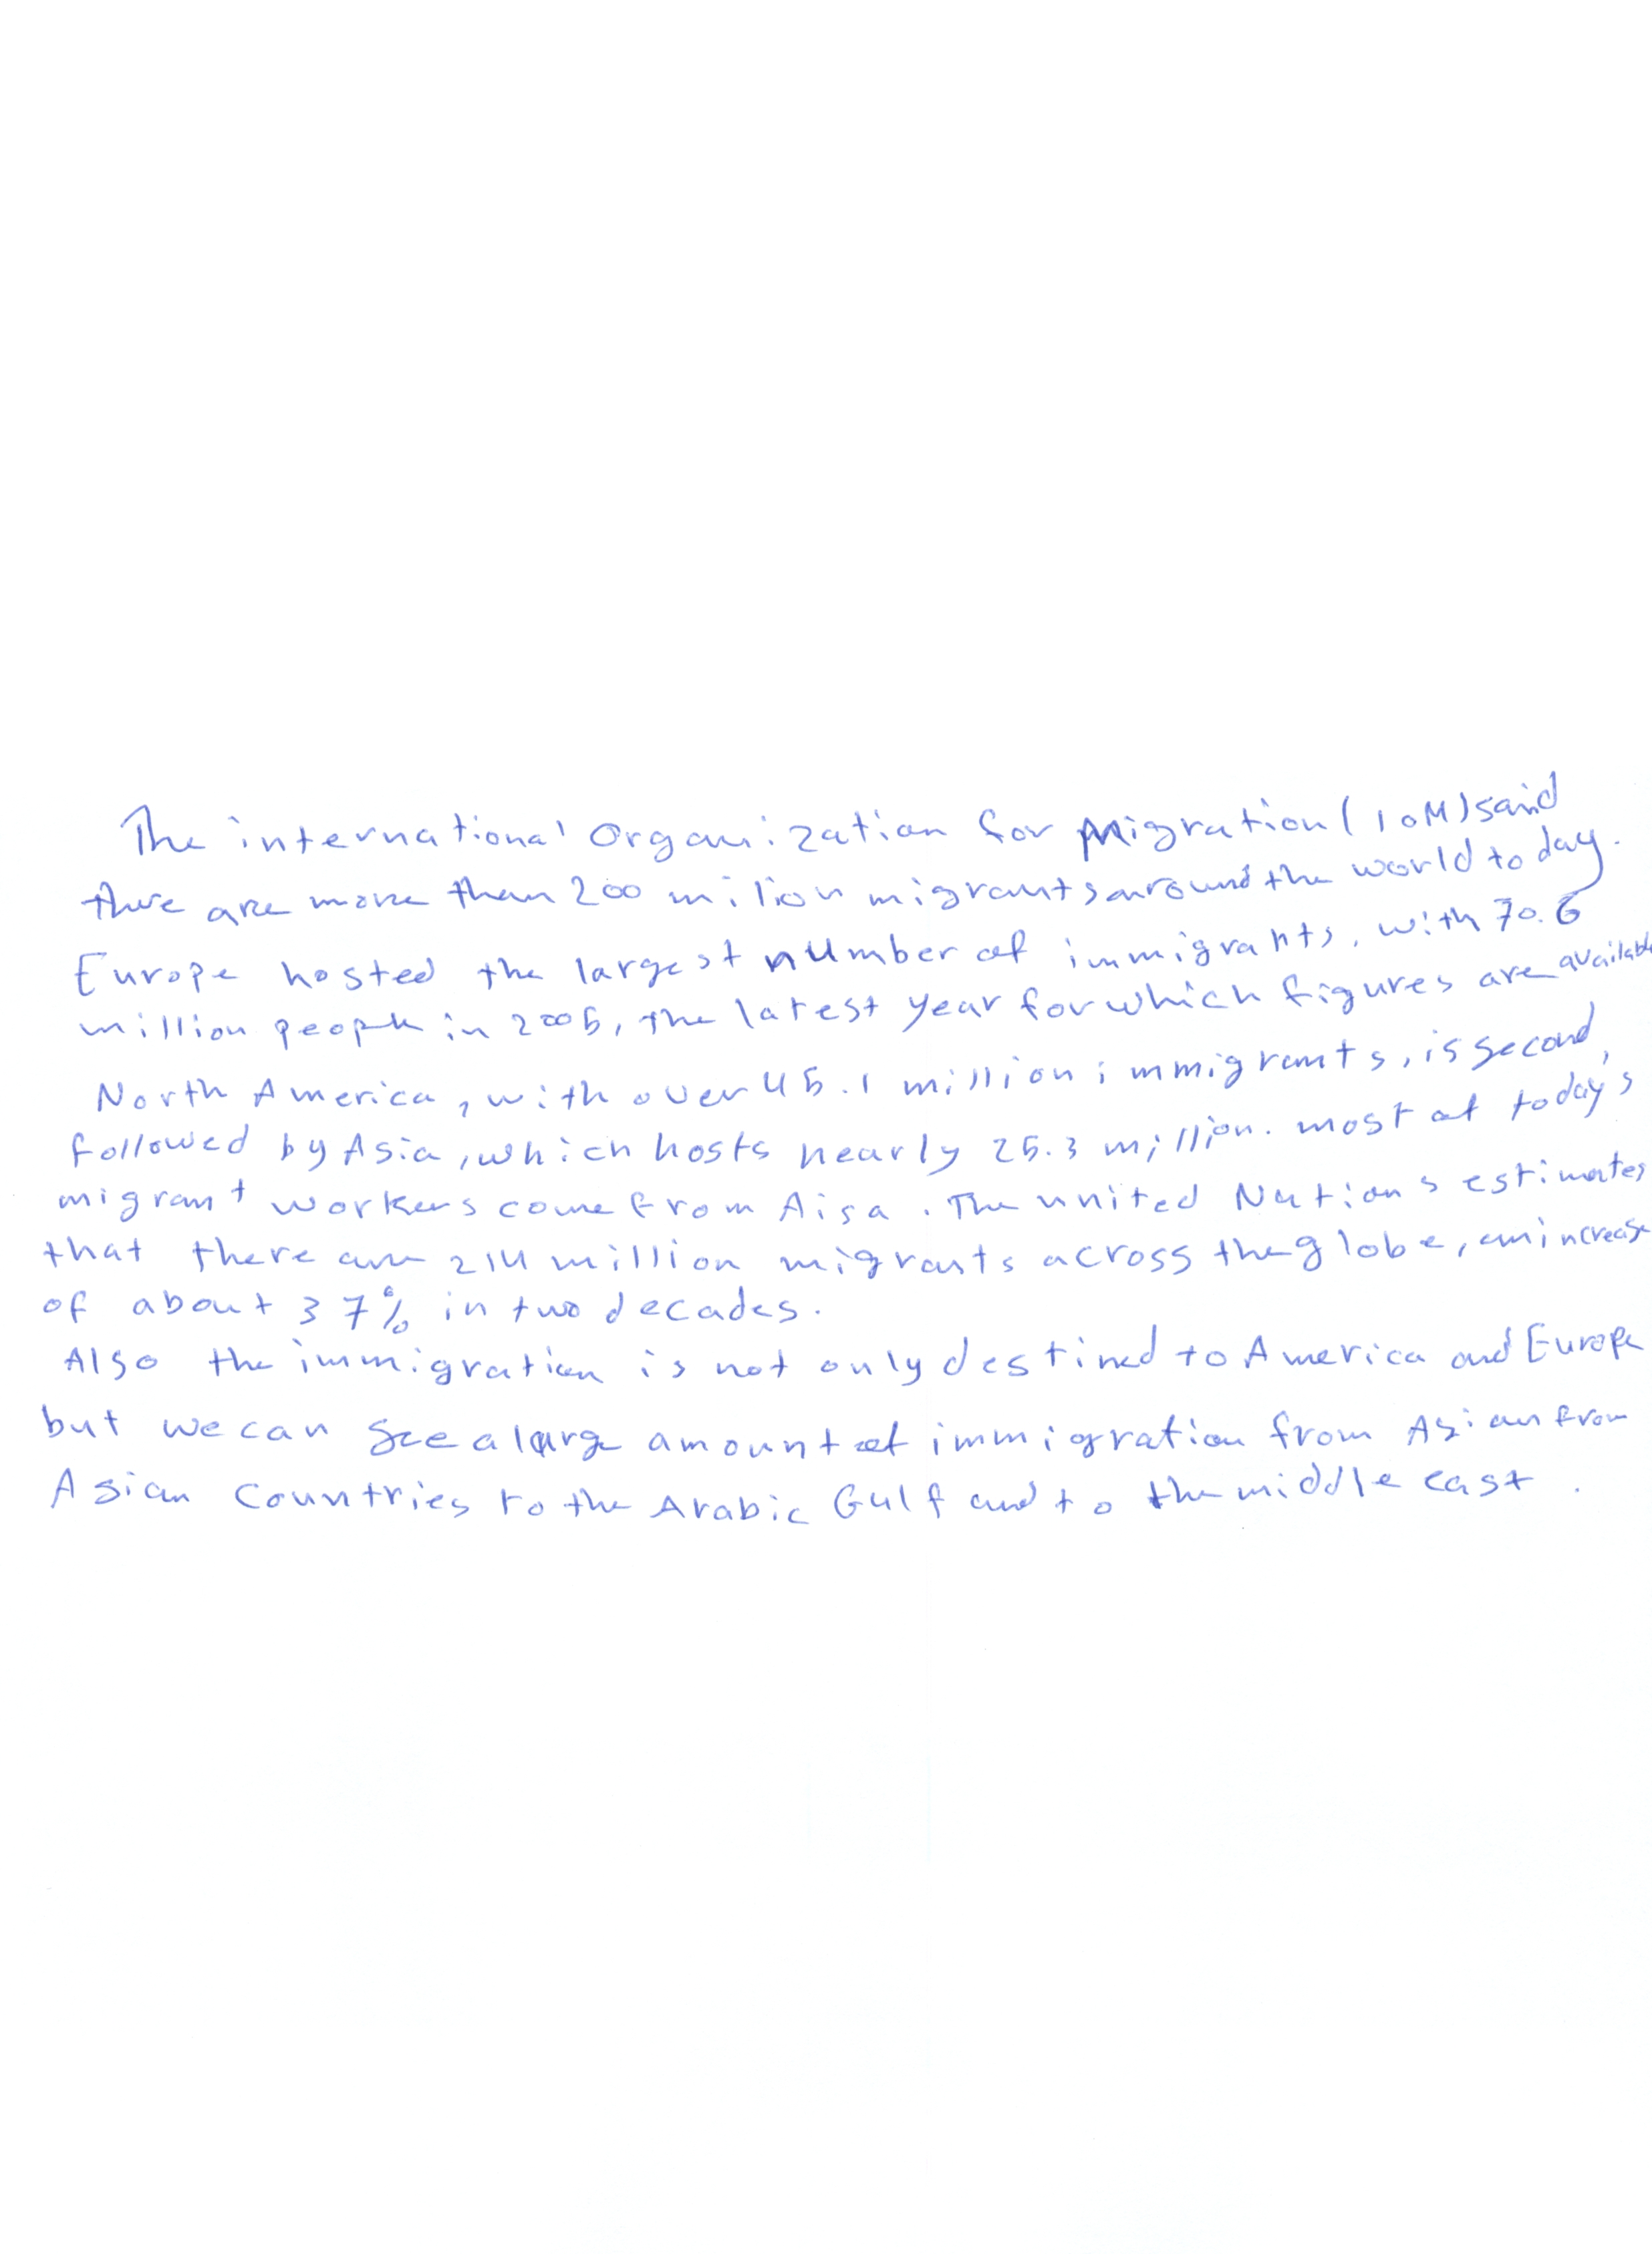 The international Organization for Migration (IOM) said
there are more than 200 milion migrants around the world today.
Europe hosted the largest number of immigrants, with 70.6
million people in 2005, the latest year for which figures are available
North America, with over 45.1 million immigrants, is second,
followed by Asia, which hosts nearly 25.3 million. most of today's
migrant workers come from Aisa. The united Nations estimates
that there are 214 million migrants across the globe, an increase
of about 37% in two decades.
Also the immigration is not only destined to America and Europe
but we can see a large amount of immigration from Asian from
Asian Countries to the Arabic Gulf and to the middle east.